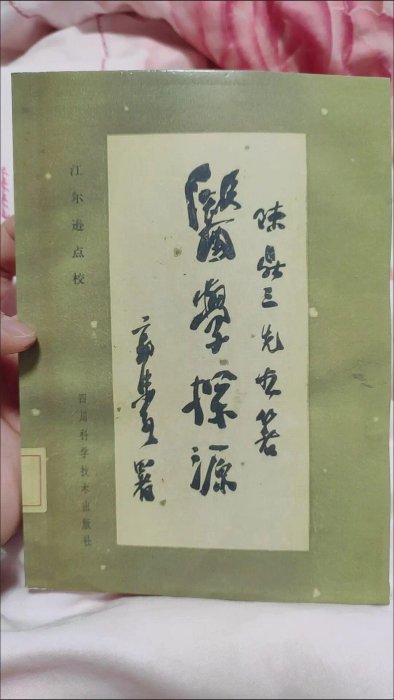 陈鼎三先生著
醫學探源
江尔逊点校
四川科学技术出版社